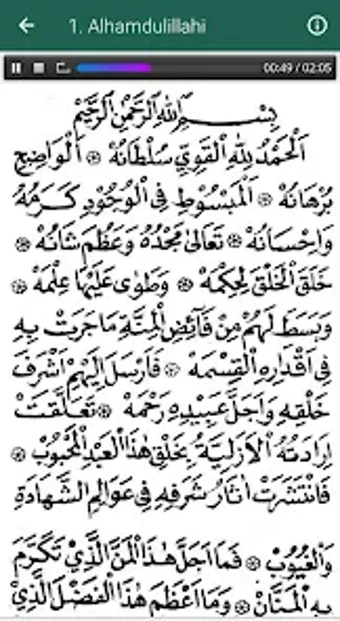 1. Alhamdulillahi
00:49 / 02:05
بِسْمِ اللهِ الرَّحْمٰنِ الرَّحِيْمِ
اَلْحَمْدُ لِلّٰهِ الْقَوِيِّ سُلْطَانُهْ ۞ اَلْوَاضِحِ
بُرْهَانُهْ ۞ اَلْمَبْسُوْطِ فِى الْوُجُوْدِ كَرَمُهُ
وَاِحْسَانُهْ ۞ تَعَالَى مَجْدُهُ وَعَظُمَ شَانُهْ ۞
خَلَقَ الْخَلْقَ لِحِكْمَهْ ۞ وَطَوٰى عَلَيْهَا عِلْمَهْ ۞
وَبَسَطَ لَهُمْ مِنْ فَآئِضِ الْمِنَّةِ مَاجَرَتْ بِهِ
فِى اَقْدَارِهِ الْقِسْمَهْ ۞ فَاَرْسَلَ اِلَيْهِمْ اَشْرَفَ
خَلْقِهِ وَاَجَلَّ عَبِيْدِهِ رَحْمَهْ ۞ تَعَلَّقَتْ
اِرَادَتُهُ الْاَزَلِيَّةُ بِخَلْقِ هٰذَا الْعَبْدِ الْمَحْبُوْبْ ۞
فَانْتَشَرَتْ اٰثَارُ شَرَفِهِ فِى عَوَالِمِ الشَّهَادَةِ
وَالْغُيُوْبْ ۞ فَمَا اَجَلَّ هٰذَا الْمَنَّ الَّذِيْ تَكَرَّمَ
بِهِ الْمَنَّانْ ۞ وَمَا اَعْظَمَ هٰذَا الْفَضْلَ الَّذِيْ